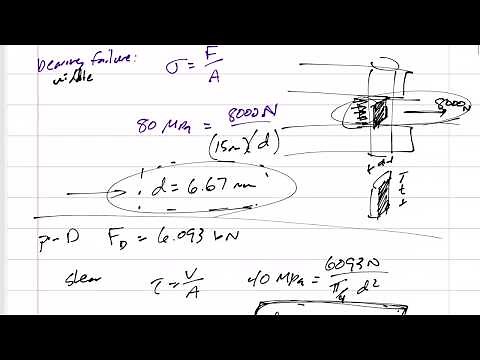 bearing failure:
middle
σ = F/A
80 MPa = 8000N/(15mm)(d)
8000N
d
t
d = 6.67 mm
pin D F_D = 6.093 kN
shear τ = V/A 40 MPa = 6093N/(π/4 d²)